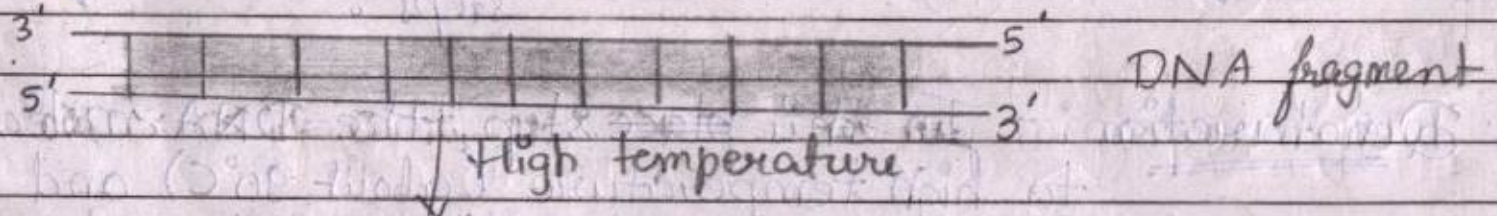 3' 5'
DNA fragment
5' 3'
High temperature